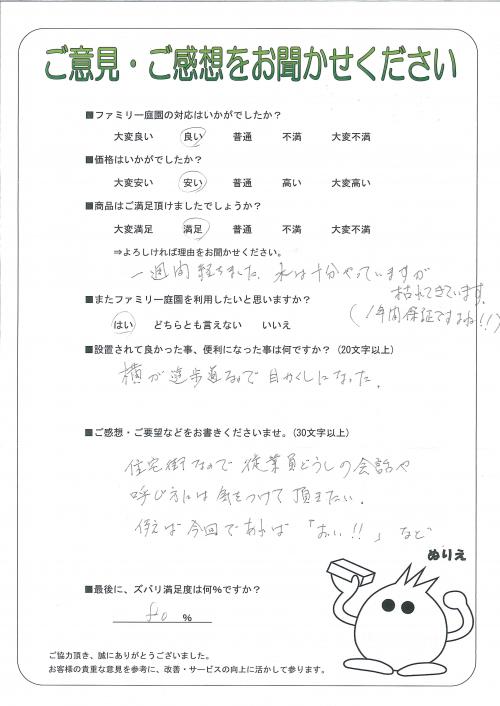 ご意見・ご感想をお聞かせください
■ファミリー庭園の対応はいかがでしたか？
大変良い 良い 普通 不満 大変不満
■価格はいかがでしたか？
大変安い 安い 普通 高い 大変高い
■商品はご満足頂けましたでしょうか？
大変満足 満足 普通 不満 大変不満
⇒よろしければ理由をお聞かせください。
一週間経ちました、水は十分やっていますが
枯れてきています。
(1年間保証ですよね!!)
■またファミリー庭園を利用したいと思いますか？
はい どちらとも言えない いいえ
■設置されて良かった事、便利になった事は何ですか？（20文字以上）
横が遊歩道なので目かくしになった。
■ご感想・ご要望などをお書きくださいませ。（30文字以上）
住宅街なので従業員どうしの会話や
呼び方には気をつけて頂きたい。
例えば今回であれば「おい!!」など
ぬりえ
■最後に、ズバリ満足度は何％ですか？
80 ％
ご協力頂き、誠にありがとうございました。
お客様の貴重な意見を参考に、改善・サービスの向上に活かして参ります。